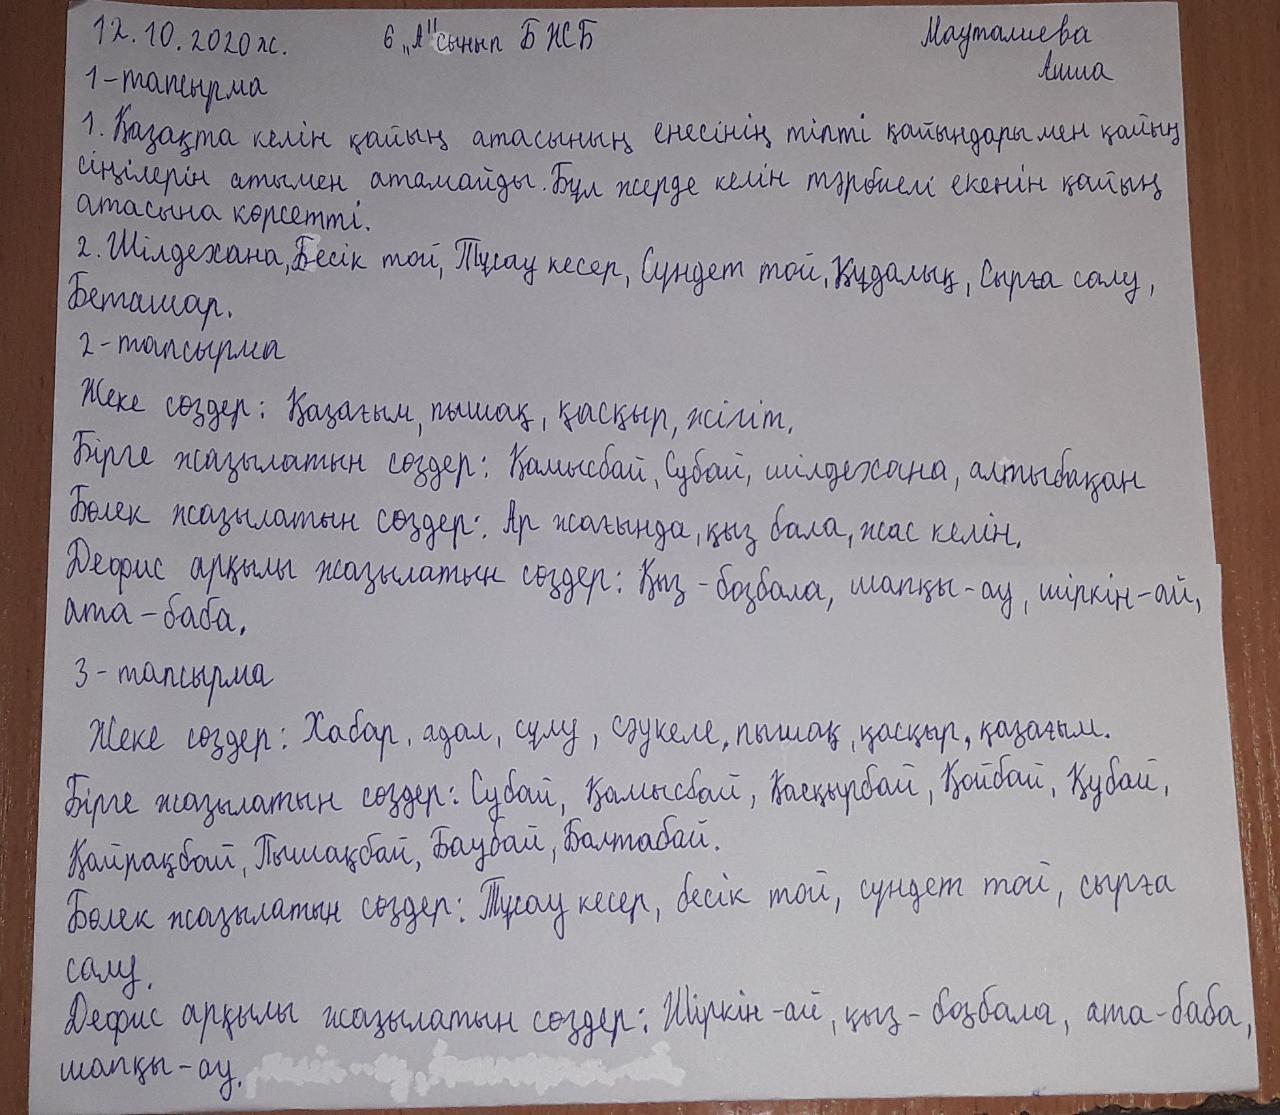 12.10.2020ж. 6 „А" сынып БЖБ Мауталиева
Аиша
1-тапсырма
1. Қазақта келін қайың атасының енесінің тіпті қайындарымен қайың
сіңілерін атымен атамайды. Бұл жерде келін тәрбиелі екенін қайың
атасына көрсетті.
2. Шілдехана, Бесік той, Тұсау кесер, Сүндет той, Құдалық, Сырға салу,
Беташар.
2-тапсырма
Жеке сөздер: Қазағым, пышақ, қасқыр, жігіт.
Бірге жазылатын сөздер: Қамысбай, Субай, шілдехана, алтыбақан
Бөлек жазылатын сөздер: Ар жағында, қыз бала, жас келін.
Дефис арқылы жазылатын сөздер: Қыз-бозбала, шапқы-ау, шіркін-ай,
ата-баба.
3-тапсырма
Жеке сөздер: Хабар, әдал, сұлу, сәукеле, пышақ, қасқыр, қазағым.
Бірге жазылатын сөздер: Субай, Қамысбай, Қасқырбай, Қойбай, Құбай,
Қайрақбай, Пышақбай, Баубай, Балтабай.
Бөлек жазылатын сөздер: Тұсау кесер, бесік той, сүндет той, сырға
салу.
Дефис арқылы жазылатын сөздер: Шіркін-ай, қыз-бозбала, ата-баба,
шапқы-ау.